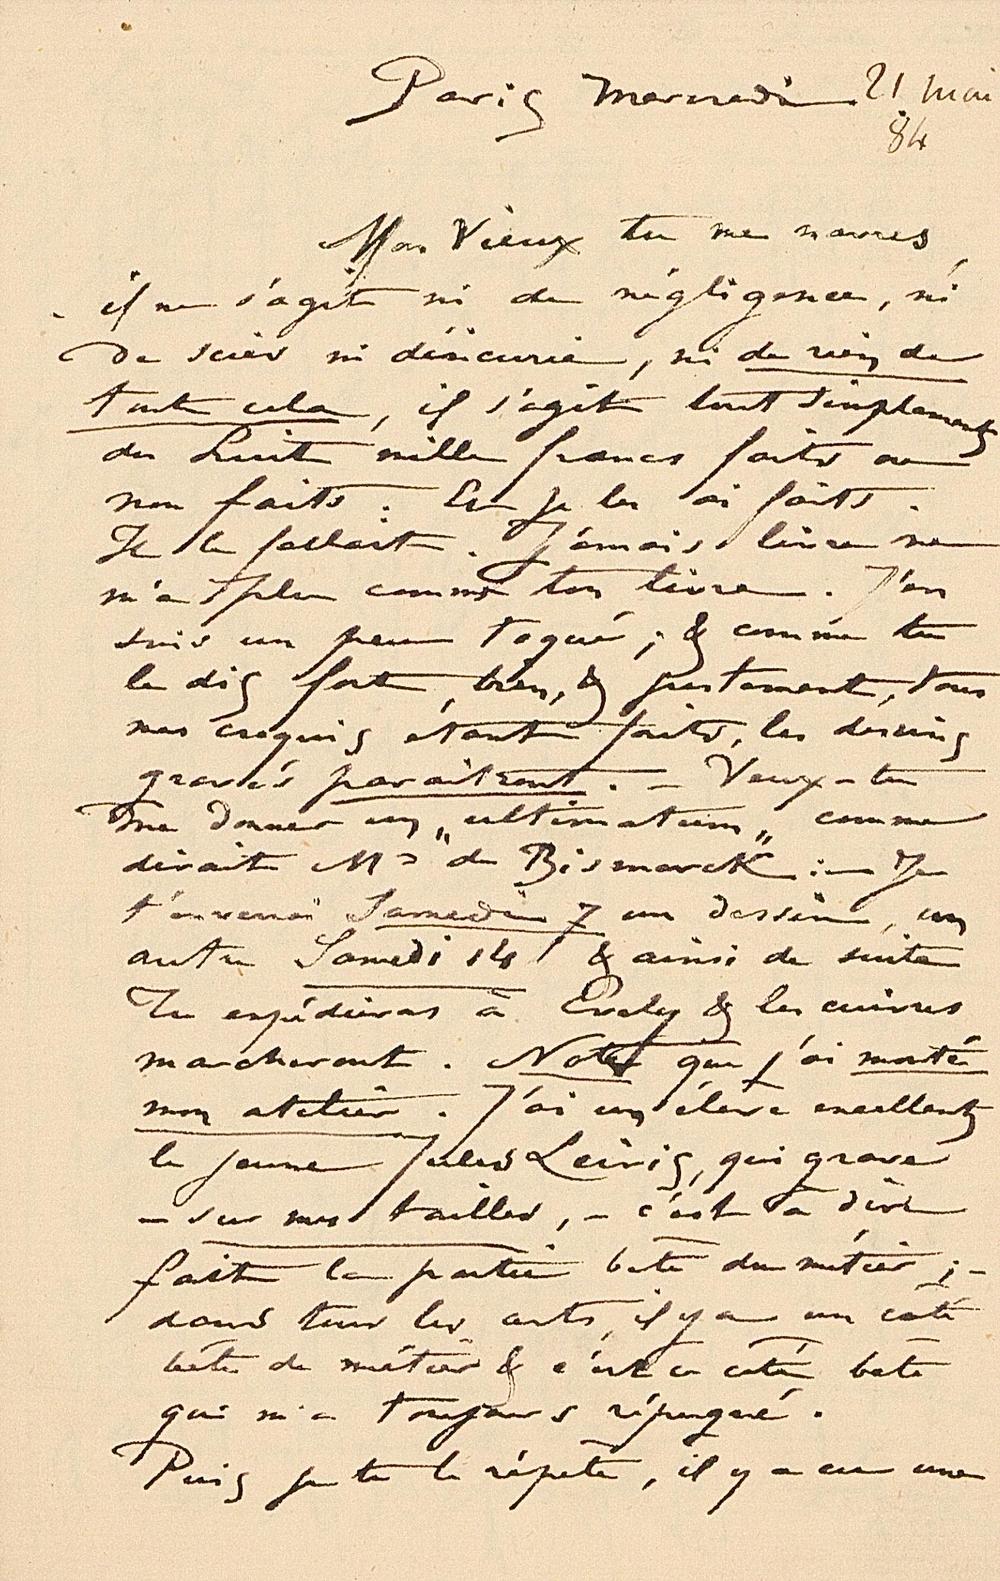 Paris Mercredi 21 Mai
84
Mon Vieux tu me navres,
il ne s'agit ni de négligence, ni
de scier ni d'incurie, ni de rien de
tout cela, il s'agit tout simplement
de huit mille francs faits ou
non faits. Eh je les ai faits.
Il le fallait. Jamais livre ne
m'a plu comme ton livre. J'en
suis un peu toqué ; & comme tu
le dis fort bien, & justement, tous
mes croquis étant faits, les dessins
gravés paraîtront. – Veux-tu
me donner un „ultimatum„ comme
dirait Mr de Bismarck : – Je
t'enverrai Samedi 7 un dessin, un
autre Samedi 14 & ainsi de suite
Tu expédieras à Evely & les cuivres
marcheront. Note que j'ai monté
mon atelier. J'ai un élève excellent
le jeune Jules , qui grave
– sur mes tailles, – c'est à dire
fait la partie bête du métier ; –
dans tous les arts, il y a un côté
bête de métier & c'est ce côté bête
qui m'a toujours répugné.
Puis je te le répète, il y a eu une